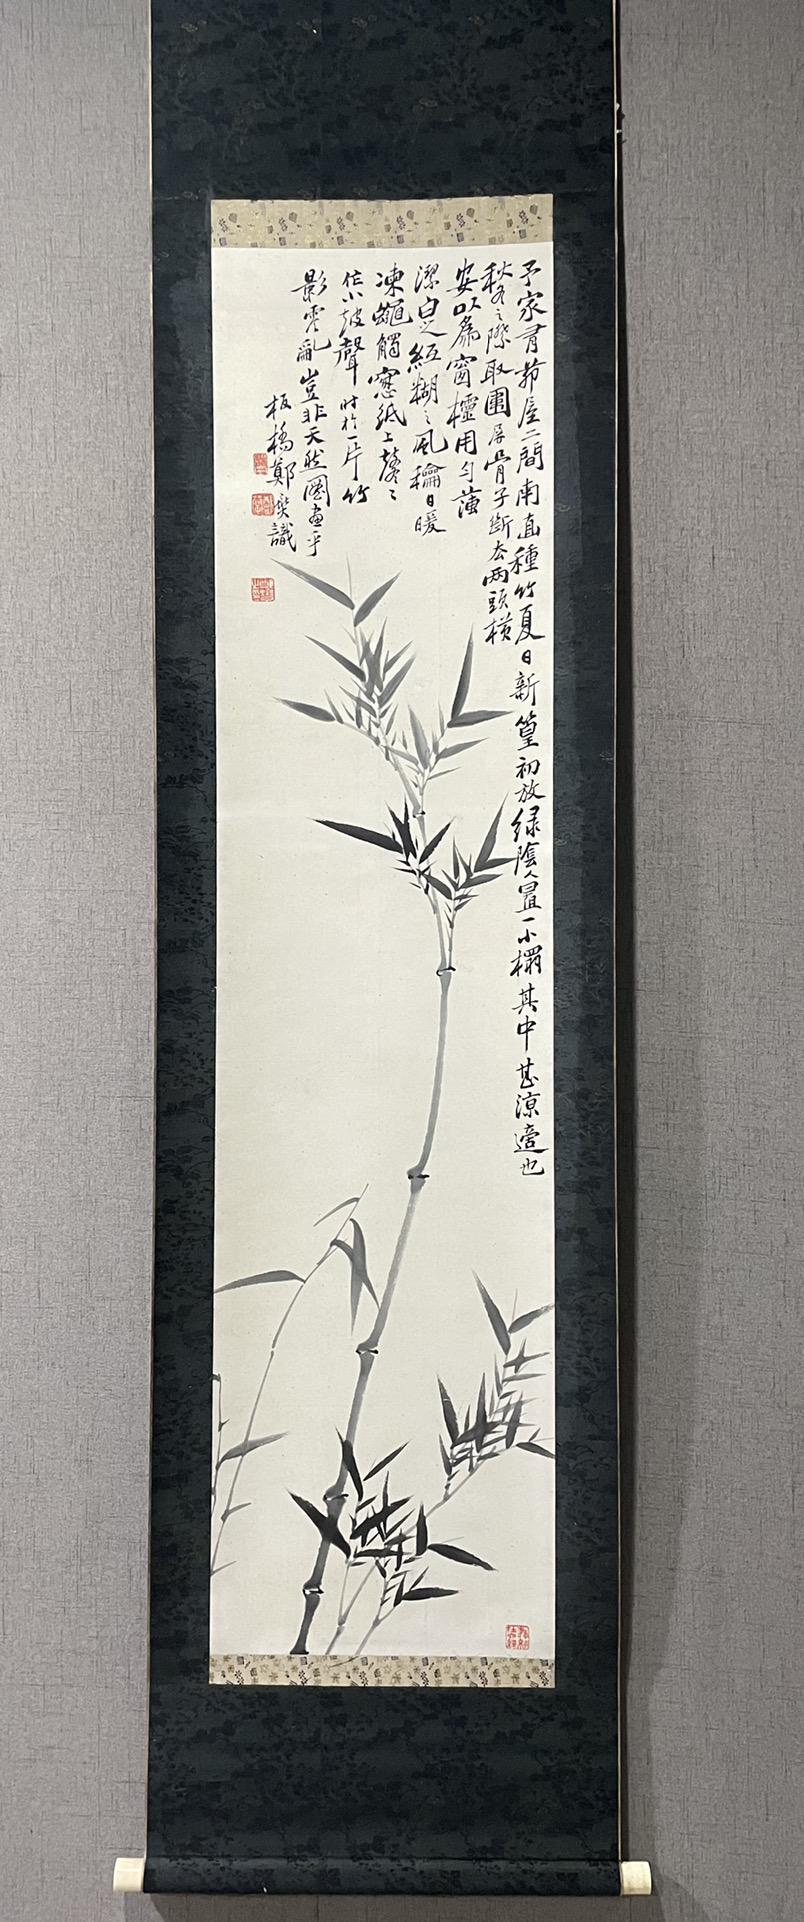 予家有茆屋二間南面種竹夏日新篁初放綠陰人置一小榻其中甚涼適也
秋冬之際取圍屏骨子斷去兩頭橫
安以為窗櫺用勻薄
潔白之紙糊之風和日暖
凍蠅觸窓紙上鼕々
作小皷聲時於一片竹
影零亂豈非天然圖畫乎
板橋鄭燮識